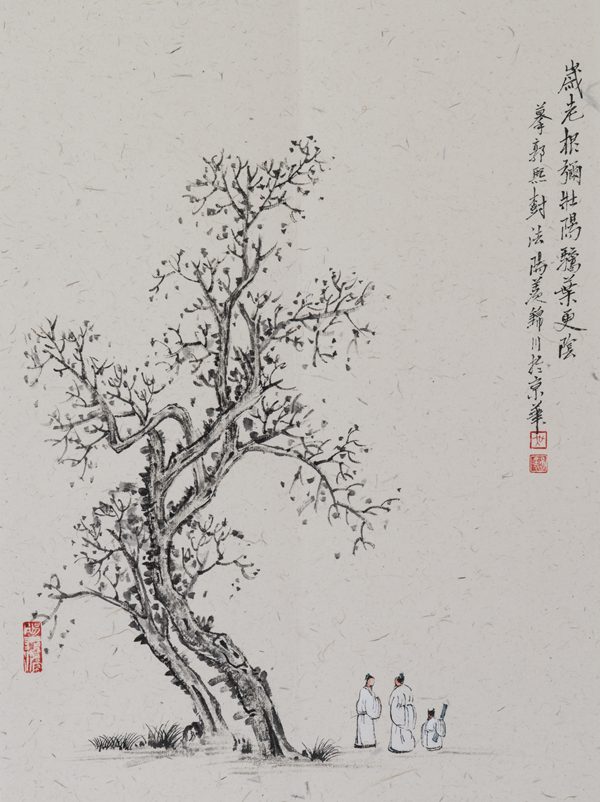 歲老根彌壯陽驕葉更陰
摹郭熙樹法陽羨錦川於京華